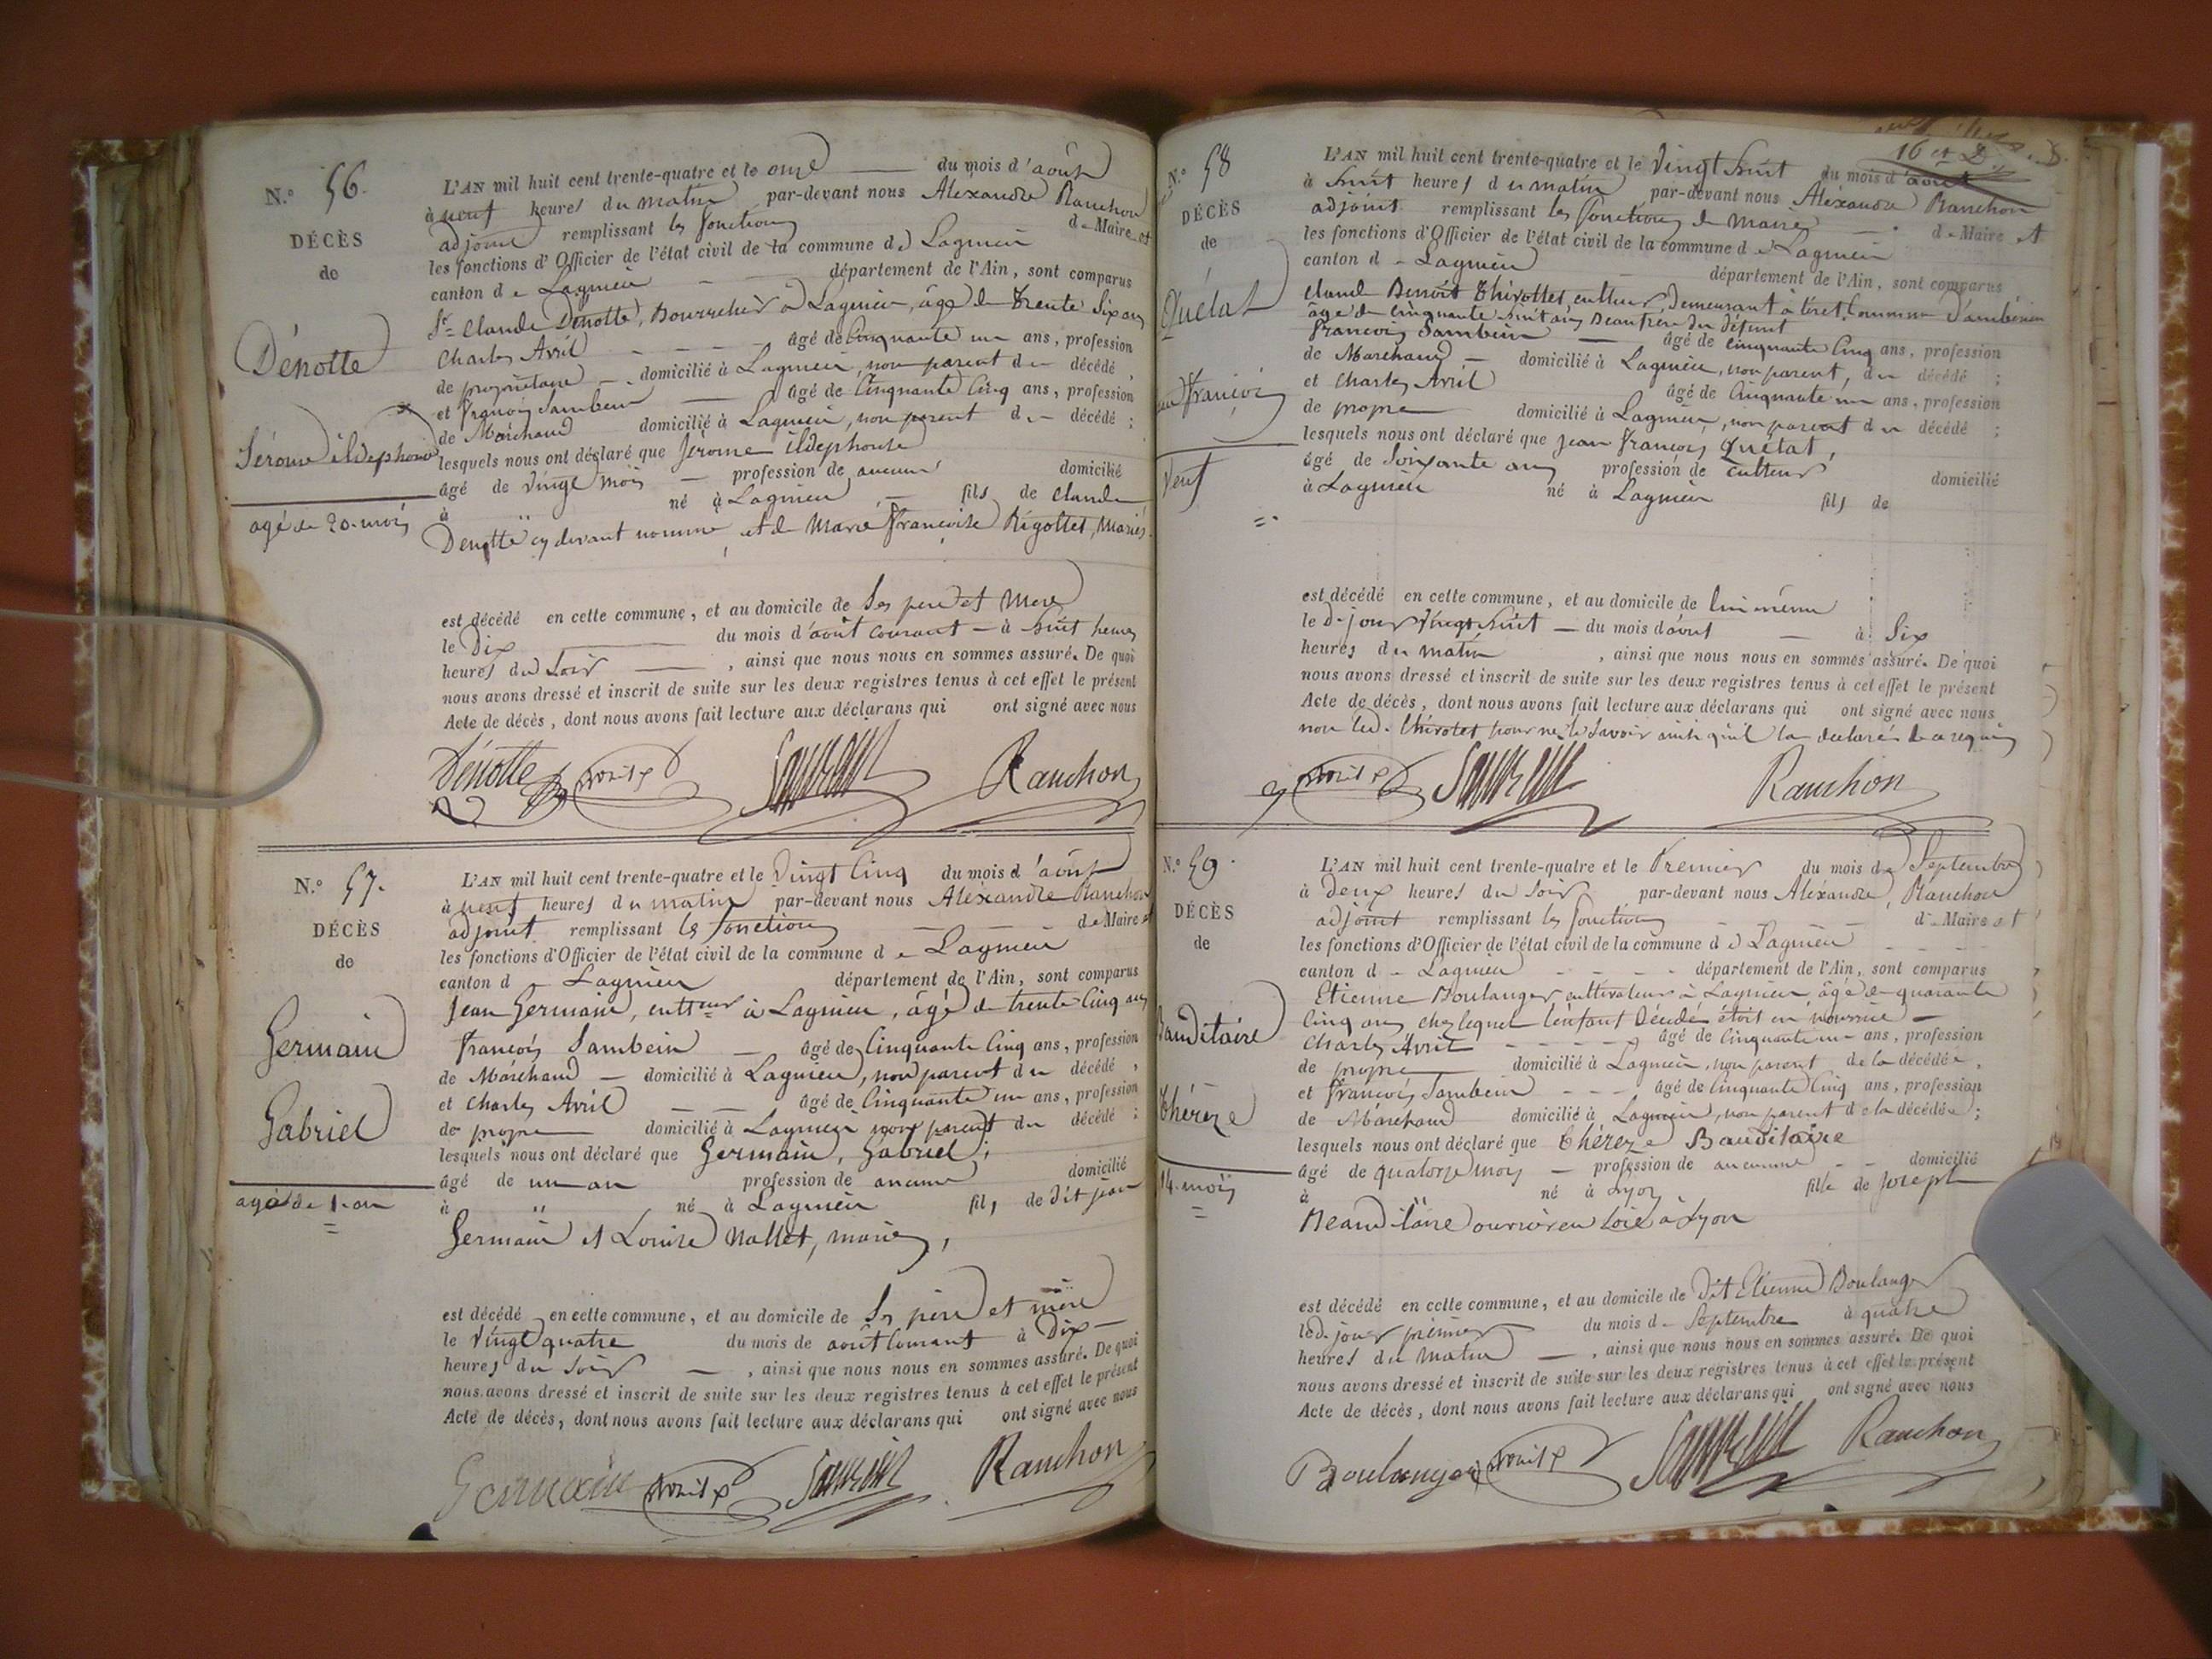 N.° 56.
DÉCÈS
de
Dénotte
Jérome ildephonse
agé de 20. mois
L'AN mil huit cent trente-quatre et le onze du mois d'août
à neuf heures du matin par-devant nous Alexandre Ranchon
adjoint remplissant les fonctions de Maire et
les fonctions d'Officier de l'état civil de la commune de Lagnieu
canton de Lagnieu département de l'Ain, sont comparus
Sr. Claude Dénotte, Bourrelier à Lagnieu, âgé de trente Six ans
Charles Avril âgé de Cinquante un ans, profession
de propriétaire domicilié à Lagnieu, non parent du décédé,
et François Sambein âgé de Cinquante Cinq ans, profession
de Marchand domicilié à Lagnieu, non parent du décédé;
lesquels nous ont déclaré que Jérome ildephonse
âgé de vingt mois profession de aucune domicilié
à " né à Lagnieu fils de Claude
Denotte cy devant nommé, et de Marie Françoise Rigottet, Mariés.
est décédé en cette commune, et au domicile de Ses pere et Mere
le Dix du mois d'août courant à huit heures
heures du Soir, ainsi que nous nous en sommes assuré. De quoi
nous avons dressé et inscrit de suite sur les deux registres tenus à cet effet le présent
Acte de décès, dont nous avons fait lecture aux déclarans qui ont signé avec nous
Dénotte Avril Sambein Ranchon
N.° 57.
DÉCÈS
de
Germain
Gabriel
agé de 1. an
L'AN mil huit cent trente-quatre et le Vingt Cinq du mois d'août
à neuf heures du matin par-devant nous Alexandre Ranchon
adjoint remplissant les fonctions de Maire et
les fonctions d'Officier de l'état civil de la commune de Lagnieu
canton de Lagnieu département de l'Ain, sont comparus
Jean Germain, cultteur à Lagnieu, âgé de trente Cinq ans
François Sambein âgé de Cinquante Cinq ans, profession
de Marchand domicilié à Lagnieu, non parent du décédé,
et Charles Avril âgé de Cinquante un ans, profession
de propre domicilié à Lagnieu non parent du décédé;
lesquels nous ont déclaré que Germain, Gabriel;
âgé de un an profession de aucune domicilié
à " né à Lagnieu fils de dit jean
Germain et Louise Nallet, mariés,
est décédé en cette commune, et au domicile de Ses père et mère
le Vingt quatre du mois de août Courant à Dix
heures du Soir, ainsi que nous nous en sommes assuré. De quoi
nous avons dressé et inscrit de suite sur les deux registres tenus à cet effet le présent
Acte de décès, dont nous avons fait lecture aux déclarans qui ont signé avec nous
Germain Avril Sambein Ranchon
16 et D.
N.° 58
DÉCÈS
de
Quétat
François
Veuf
L'AN mil huit cent trente-quatre et le Vingt huit du mois d'août
à huit heures du matin par-devant nous Alexandre Ranchon
adjoint remplissant les fonctions de Maire de Maire et
les fonctions d'Officier de l'état civil de la commune de Lagnieu
canton de Lagnieu département de l'Ain, sont comparus
Claude Benoît Thivollet, cultteur, Demeurant à Commune d'ambérieu
âgé de Cinquante huit ans Beaufrère du Défunt
François Sambein âgé de cinquante Cinq ans, profession
de Marchand domicilié à Lagnieu, non parent, du décédé;
et Charles Avril âgé de Cinquante un ans, profession
de propre domicilié à Lagnieu, non parent du décédé;
lesquels nous ont déclaré que Jean François Quétat,
âgé de Soixante ans profession de Cultteur domicilié
à Lagnieu né à Lagnieu fils de
est décédé en cette commune, et au domicile de lui même
le d. jour Vingt huit du mois d'août à Six
heures du matin, ainsi que nous nous en sommes assuré. De quoi
nous avons dressé et inscrit de suite sur les deux registres tenus à cet effet le présent
Acte de décès, dont nous avons fait lecture aux déclarans qui ont signé avec nous
non led. Thivolet pour ne le Savoir ainsi qu'il l'a déclaré de ce requis
Avril Sambein Ranchon
N.° 59.
DÉCÈS
de
Bauditaire
Théreze
14. mois
L'AN mil huit cent trente-quatre et le Premier du mois de Septembre
à Deux heures du Soir par-devant nous Alexandre Ranchon
adjoint remplissant les fonctions de Maire et
les fonctions d'Officier de l'état civil de la commune de Lagnieu
canton de Lagnieu département de l'Ain, sont comparus
Etienne Boulanger, cultivateur à Lagnieu âgé de quarante
Cinq ans, chez lequel l'enfant Décédé étoit en nourrice
Charles Avril âgé de Cinquante un ans, profession
de propre domicilié à Lagnieu, non parent de la décédée,
et François Sambein âgé de Cinquante Cinq ans, profession
de Marchand domicilié à Lagnieu, non parent de la décédée;
lesquels nous ont déclaré que Théreze Bauditaire
âgé de quatorze mois profession de aucune domicilié
à né à Lyon fille de Joseph
Beauditaire ouvrier en Soie à Lyon
est décédé en cette commune, et au domicile de Dit Etienne Boulanger
le d. jour premier du mois de Septembre à quatre
heures du Matin, ainsi que nous nous en sommes assuré. De quoi
nous avons dressé et inscrit de suite sur les deux registres tenus à cet effet le présent
Acte de décès, dont nous avons fait lecture aux déclarans qui ont signé avec nous
Boulanger Avril Sambein Ranchon